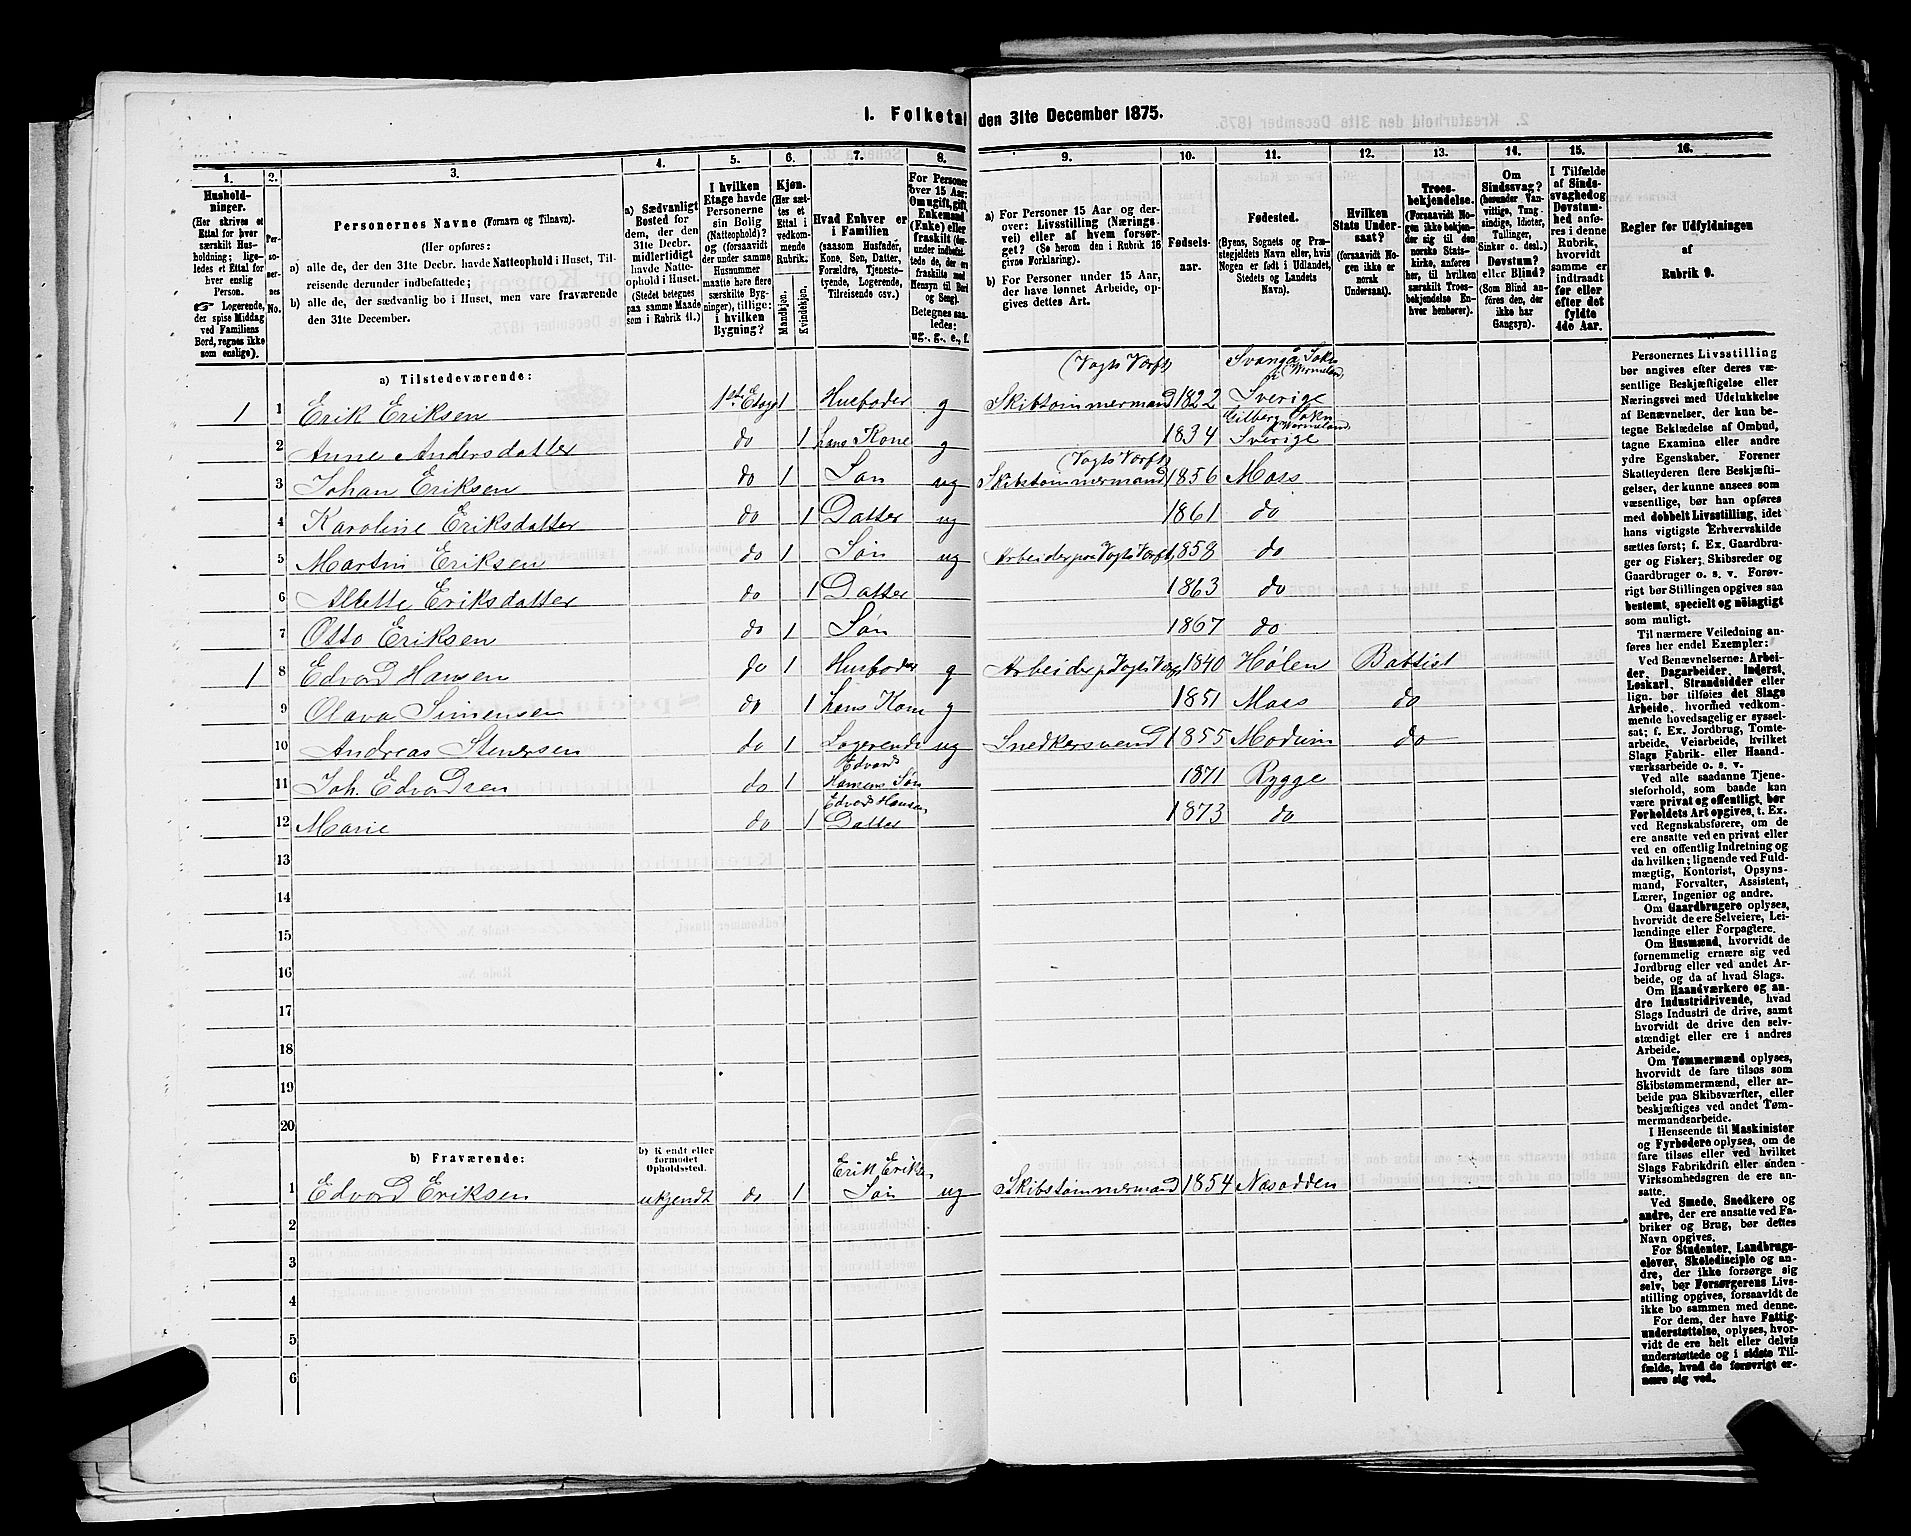 1. Folketal den 31te December 1875.
1. 2. 3. 4. 5. 6. 7. 8. 9. 10. 11. 12. 13. 14. 15. 16.
Hushold-
ninger.
(Her skrives et
Ettal for hver
særskilt Hus-
holdning; lige-
ledes et Ettal for
hver enslig
Person.
☞ Logerende,
der spise Middag
ved Familiens
Bord, regnes ikke
som enslige).
Per-
so-
ner-
nes
No.
Personernes Navne (Fornavn og Tilnavn).
(Her opføres:
a) alle de, der den 31te Decbr. havde Natteophold i Huset, Til-
reisende derunder indbefattede;
b) alle de, der sædvanlig bo i Huset, men vare fraværende
den 31te December.
a) Sædvanligt
Bosted for
dem, der den
31te Decbr.
midlertidigt
havde Natte-
ophold i Huset.
(Stedet betegnes
paa samme Maade
som i Rubrik 11.)
I hvilken
Etage havde
Personerne
sin Bolig
(Natteophold)?
og (forsaavidt
der under samme
Husnummer
maatte høre flere
særskilte Byg-
ninger), tillige:
i hvilken
Bygning?
Kjøn.
(Her sæt-
tes et
Ettal i
vedkom-
mende
Rubrik.
Mandkjøn.
Kvindekjøn.
Hvad Enhver er
i Familien
(saasom Husfader,
Kone, Søn, Datter,
Forældre, Tjeneste-
tyende, Logerende,
Tilreisende osv.)
For Personer
over 15 Aar:
Om ugift, gift,
Enkemand
(Enke) eller
fraskilt (der-
under indbefat-
tede de, der ere
fraskilte med
Hensyn til Bord
og Seng).
Betegnes saa-
ledes:
ug., g., e., f.
a) For Personer 15 Aar og der-
over: Livsstilling (Nærings-
vei) eller af hvem forsør-
get? (Se herom den i Rubrik 16
givne Forklaring).
b) For Personer under 15 Aar,
der have lønnet Arbeide, op-
gives dettes Art.
Fødsels-
aar.
Fødested.
(Byens, Sognets og Præ-
stegjeldets Navn eller, hvis
Nogen er født i Udlandet,
Stedets og Landets
Navn).
Hvilken
Stats Under-
saat?
(forsaavidt No-
gen ikke er
norsk
Undersaat).
Troes-
bekjendelse.
(Forsaavidt No-
gen ikke bekjen-
der sig til den
norske Stats-
kirke, anføres
her, til hvilken
særskilt Troes-
bekjendelse En-
hver henhører).
Om
Sindssvag?
(herunder Van-
vittige, Tung-
sindige, Idioter,
Tullinger,
Sinker o. desl.)
Døvstum?
eller Blind?
(Som Blind an-
føres den, der
ikke har
Gangsyn).
I Tilfælde
af Sinds-
svaghed og
Døvstum-
hed anfø-
res i denne
Rubrik,
hvorvidt
samme er
indtraadt
før eller
efter det
fyldte
4de Aar.
Regler for Udfyldningen
af
Rubrik 9.
a) Tilstedeværende:
(Vogts Værft) Svangå Sokn (Vermeland)
1 1 Erik Eriksen 1ste Etage 1 Husfader g Skibstømmermand 1822 Sverige
Gilberg Sokn Vermeland
2 Anne Andersdatter do 1 hans Kone g 1834 Sverige
(Vogts Værft)
3 Johan Eriksen do 1 Søn ug Skibstømmermand 1856 Moss
4 Karoline Eriksdatter do 1 Datter ug 1861 do
5 Martin Eriksen do 1 Søn ug Arbeider paa Vogts Værft 1858 do
6 Albette Eriksdatter do 1 Datter 1863 do
7 Otto Eriksen do 1 Søn 1867 do
1 8 Edvard Hansen do 1 Husfader g Arbeider p Vogts Værft 1840 Hølen Battist
9 Olava Simensen do 1 hans Kone g 1851 Moss do
10 Andreas Stenersen do 1 Logerende ug Snedkersvend 1855 Modum do
11 Joh. Edvardsen do 1 Edvard Hansens Søn 1871 Rygge
12 Marie do 1 Edvard Hansen Datter 1873 do
13
14
15
16
17
18
19
20
b) Fraværende:
b) Kjendt eller
formodet
Opholdssted.
1 Edvard Eriksen ukjendt do 1 Erik Eriksen Søn ug Skibstømmermand 1854 Næsodden
2
3
4
5
6
Personernes Livsstilling
bør angives efter deres væ-
sentlige Beskjæftigelse eller
Næringsvei med Udelukkelse
af Benævnelser, der kun be-
tegne Beklædelse af Ombud,
tagne Examina eller andre
ydre Egenskaber. Forener
Skatteyderen flere Beskjæfti-
gelser, der kunne ansees som
væsentlige, bør han opføres
med dobbelt Livsstilling, idet
hans vigtigste Erhvervskilde
sættes først; f. Ex. Gaardbru-
ger og Fisker; Skibsreder og
Gaardbruger o. s. v. Forøv-
rigt bør Stillingen opgives saa
bestemt, specielt og nöiagtigt
som muligt.
Til nærmere Veiledning an-
føres her endel Exempler:
Ved Benævnelserne: Arbei-
der, Dagarbeider, Inderst,
Løskarl, Strandsidder eller
lign. bør tilføies det Slags
Arbeide, hvormed vedkom-
mende hovedsagelig er syssel-
sat; f. Ex. Jordbrug, Tomte-
arbeide, Veiarbeide, hvilket
Slags Fabrik- eller Haand-
værksarbeide o. s. v.
Ved alle saadanne Tjene-
steforhold, som baade kan
være privat og offentligt, bør
Forholdets Art opgives, t. Ex.
ved Regnskabsførere, om de
ere ansatte ved en privat eller
ved en offentlig Indretning og
da hvilken; lignende ved Fuld-
mægtig, Kontorist, Opsyns-
mand, Forvalter, Assistent,
Lærer, Ingeniør og andre.
Om Gaardbrugere oplyses,
hvorvidt de ere Selveiere, Lei-
lændinge eller Forpagtere.
Om Husmænd, hvorvidt de
fornemmelig ernære sig ved
Jordbrug eller ved andet Ar-
beide, og da af hvad Slags.
Om Haandværkere og an-
dre Industridrivende, hvad
Slags Industri de drive, samt
hvorvidt de drive den selv-
stændigt eller ere i andres
Arbeide.
Om Tømmermænd oplyses,
hvorvidt de fare tilsøs som
Skibstømmermænd, eller ar-
beide paa Skibsværfter, eller
beskjæftiges ved andet Tøm-
mermandsarbeide.
I Henseende til Maskinister
og Fyrbødere oplyses, om de
fare tilsøs eller ved hvilket
Slags Fabrikdrift eller anden
Virksomhedsgren de ere an-
satte.
Ved Smede, Snedkere og
andre, der ere ansatte ved Fa-
briker og Brug, bør dettes
Navn opgives.
For Studenter, Landbrugs-
elever, Skoledisciple og an-
dre, der ikke forsørge sig
selv, bør Forsørgerens Livs-
stilling opgives, forsaavidt de
ikke bo sammen med denne.
For dem, der have Fattig-
understøttelse, oplyses, hvor-
vidt de ere helt eller delvis
understøttede og i sidste Til-
fælde, hvad de forøvrigt er-
nære sig ved.